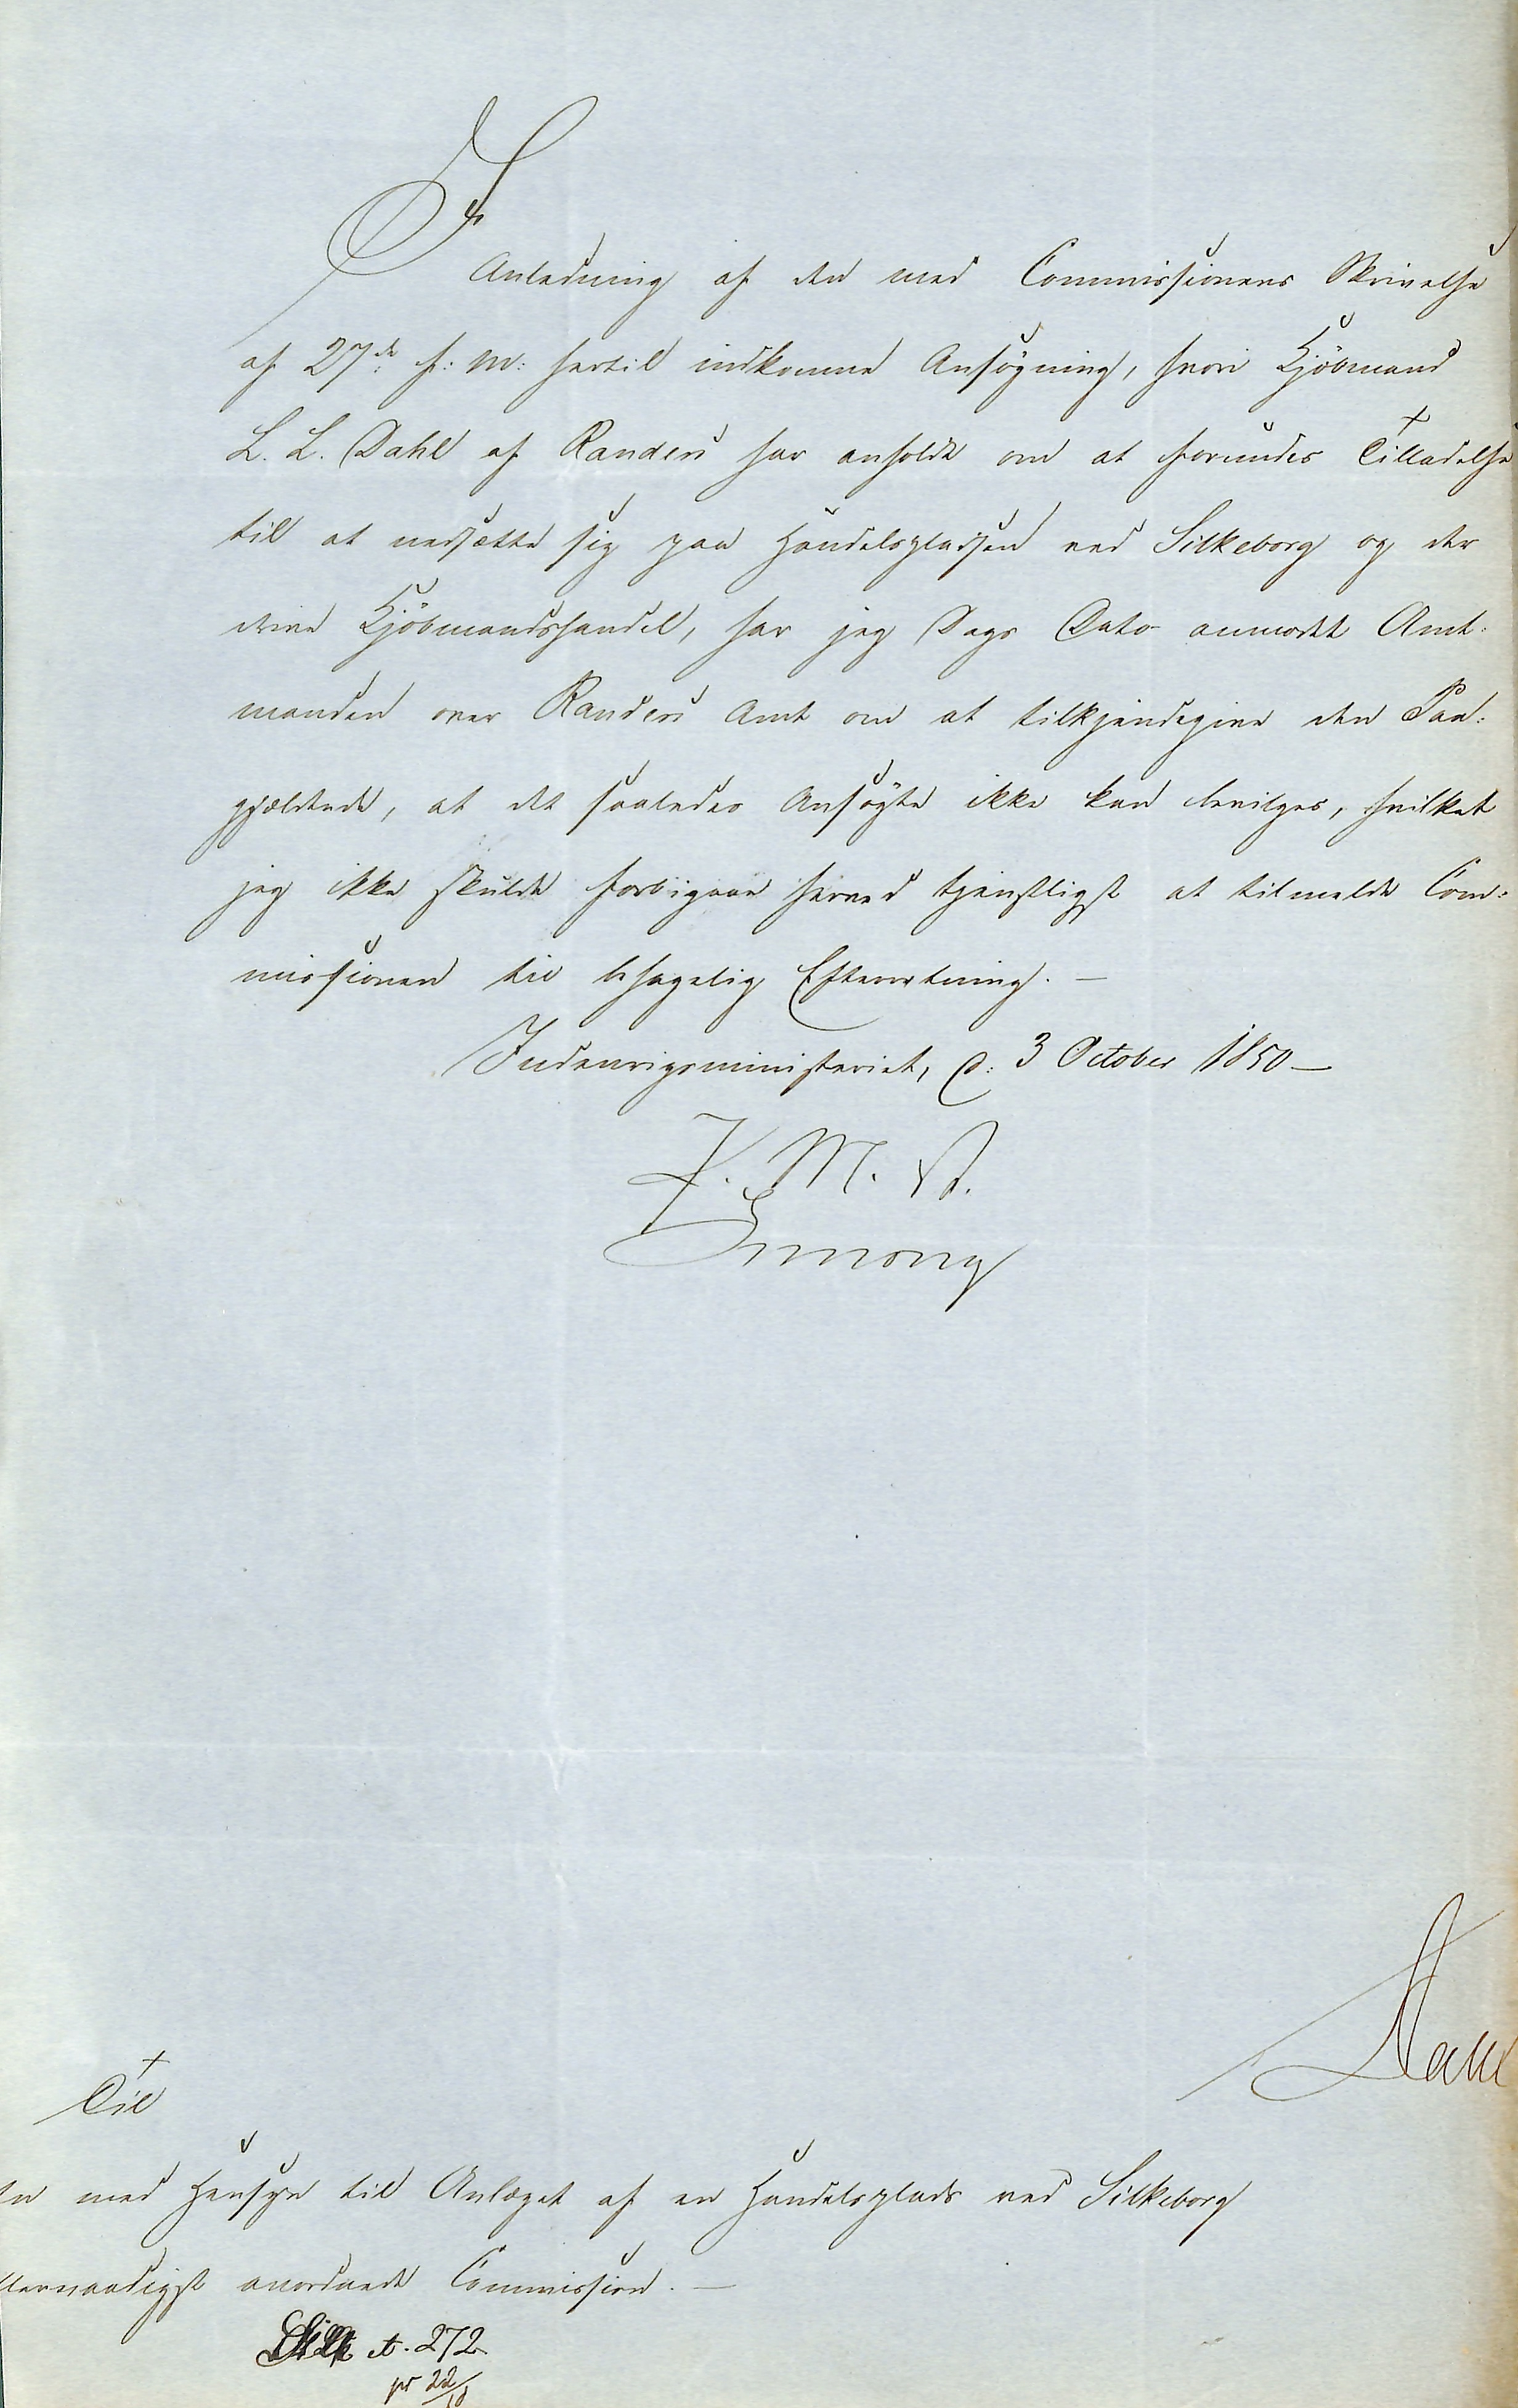 I
Anledning af den med Commissionens Skrivelse
af 27de f: M: hertil indkomne Ansøgning, hvori Kjöbmand
L. L. Dahl af Randers har anholdt om at forundes Tilladelse
til at nedsætte sig paa Handelspladsen ved Silkeborg og der
drive Kjöbmandshandel, har jeg Dags Dato anmodet Amt:
manden over Randers Amt om at tilkjendegive den Paa:
gjældende, at det saaledes Ansøgte ikke kan bevilges, hvilket
jeg ikke skulde forbigaae herved tjenstligst at tilmelde Com:
missionen til behagelig Efterretning. —
Indenrigsministeriet, d: 3 October 1850 —
F. M. A.
Simony
Til
den med Hensyn til Anlæget af en Handelsplads ved Silkeborg
allernaadigst anordnede Commission. —
Silk A. 272.
pr 22/10